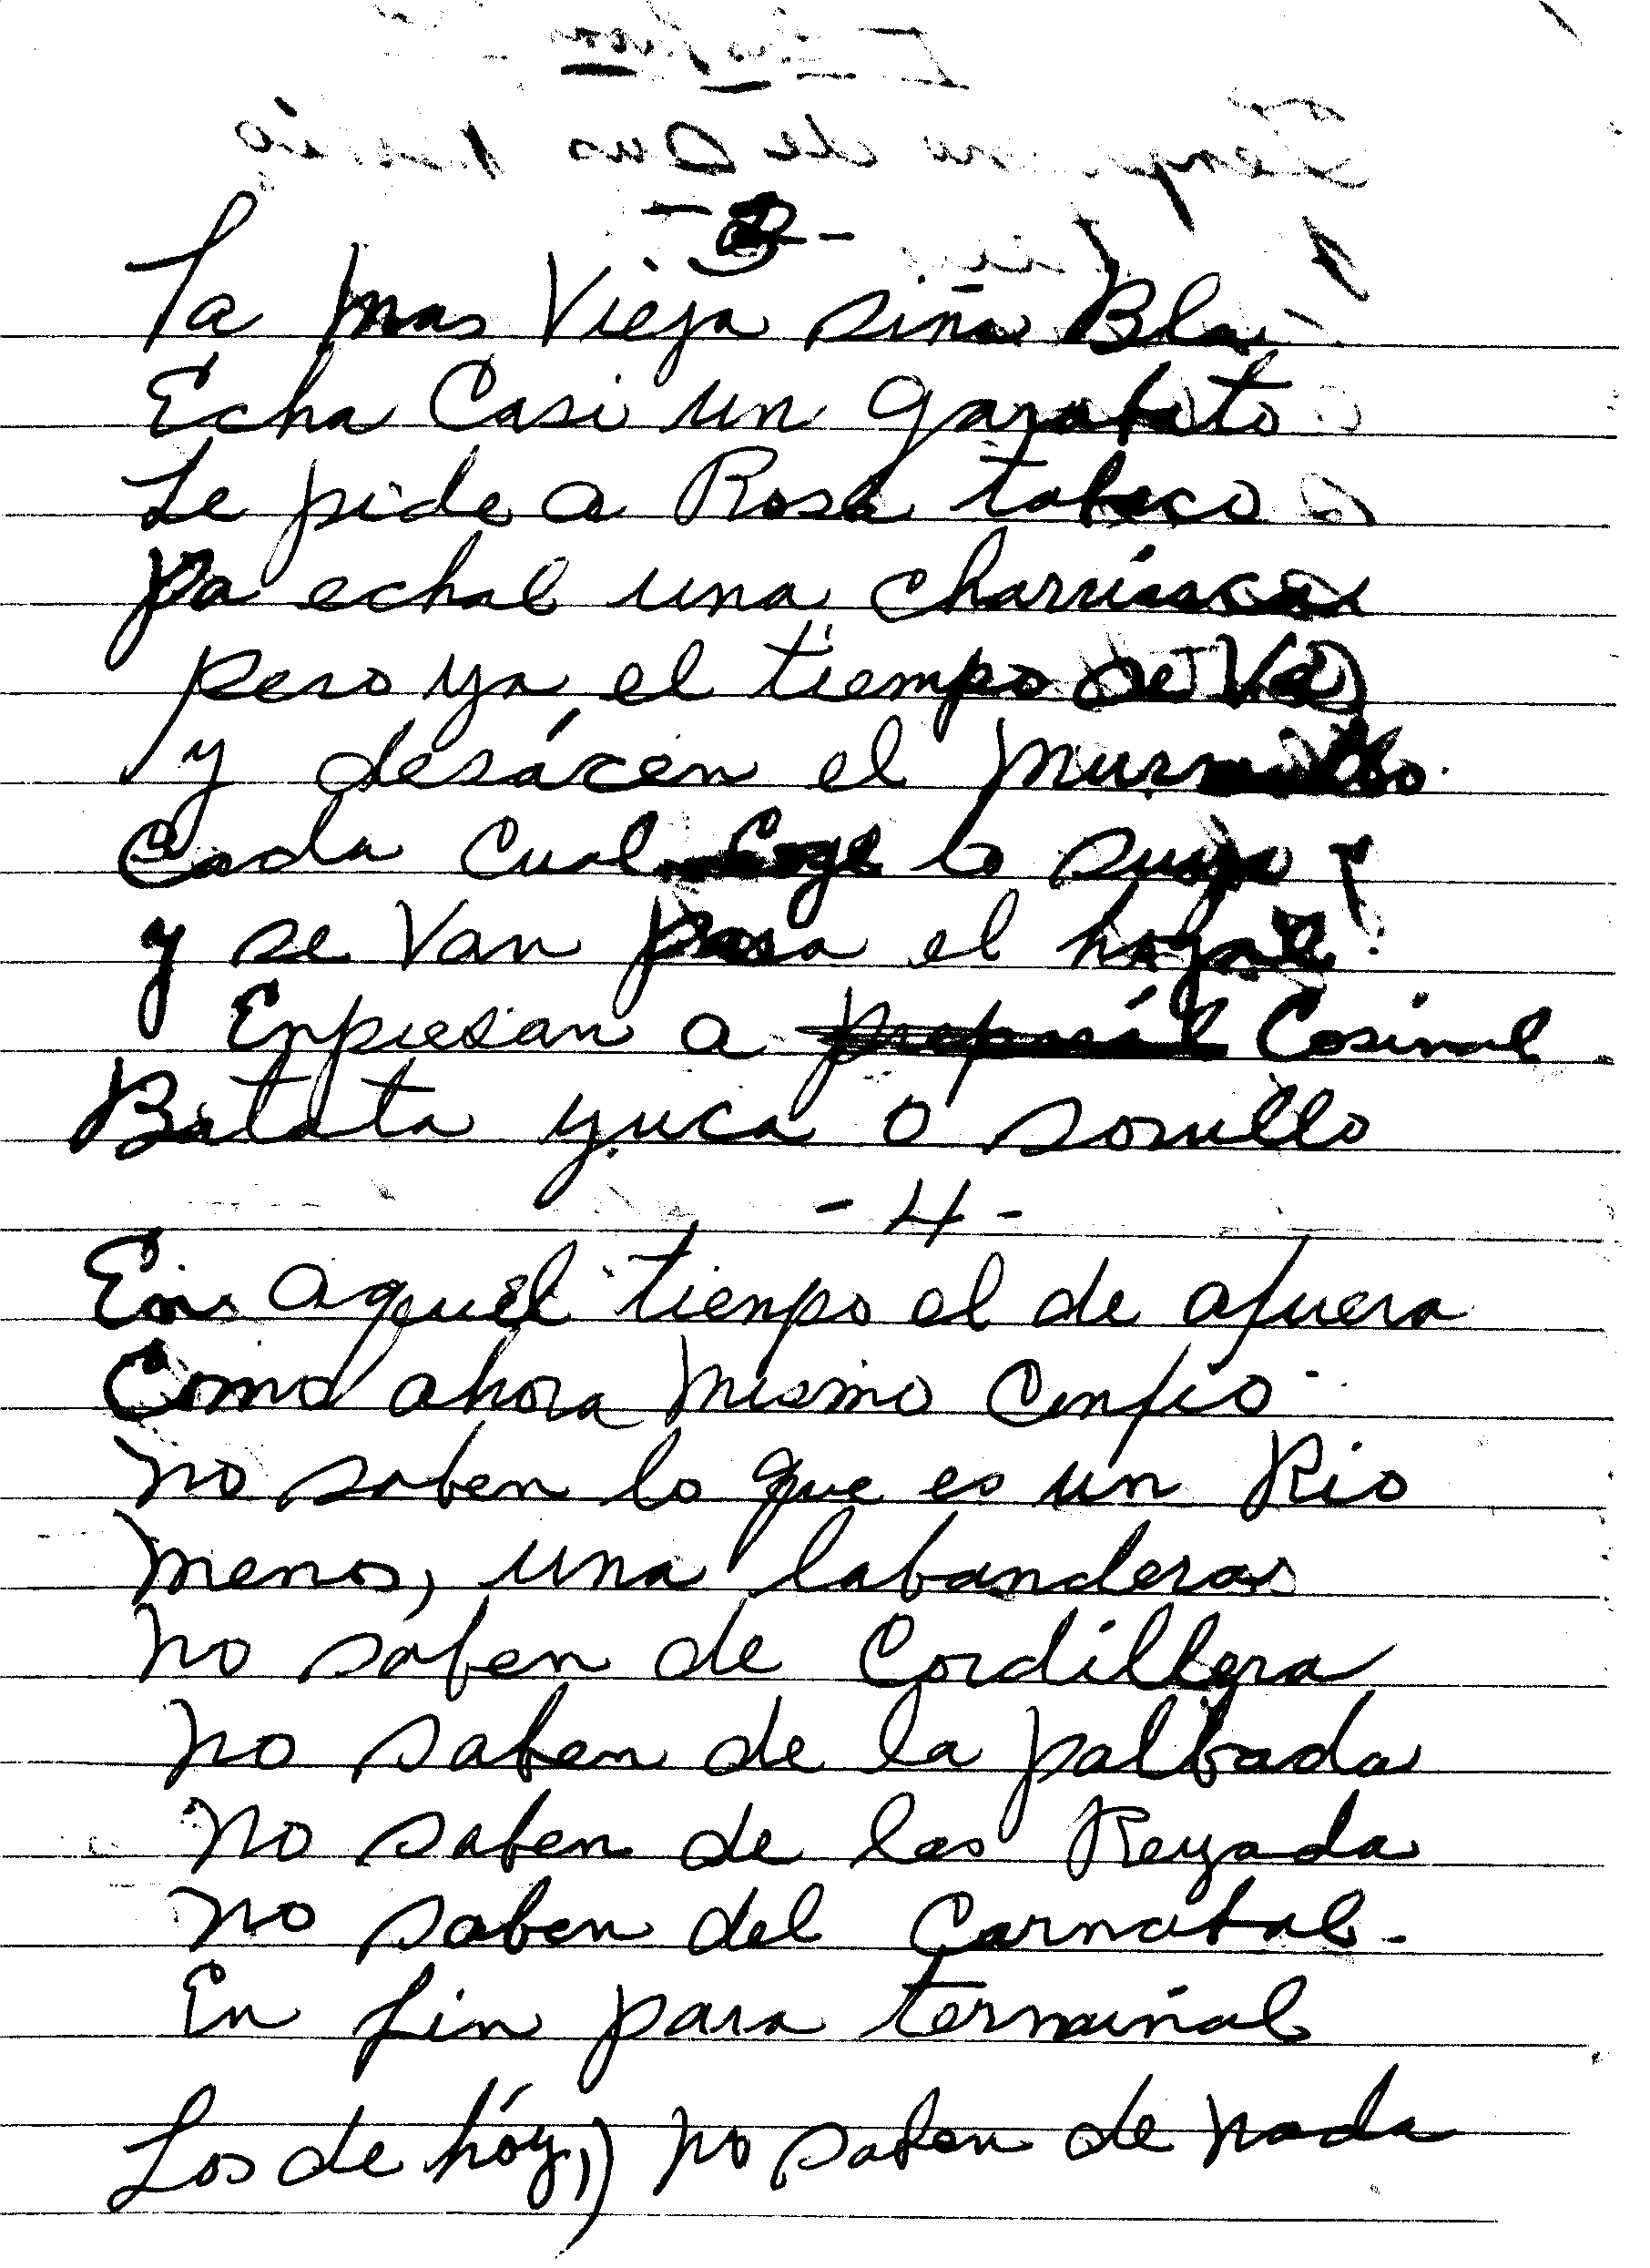 -3-
La mas Vieja sina Bla
Echa Casi un garabato
Le pide a Rosa tabaco
pa echal una charrisca
pero ya el tiempo se va
y desácen el murmullo
Cada cual Coge lo suyo
y se Van para el hogal
Enpiesan a preparál Cosinal
Batata yuca o sorullo
-4-
En aquel tienpo el de afuera
Como ahora mismo Confio
no saben lo que es un Rio
menos, una labanderas
no saben de Cordillera
no saben de la palbada
no saben de las Reyada
no saben del Carnabal-
En fin para terminal
Los de hóy, no saben de nada